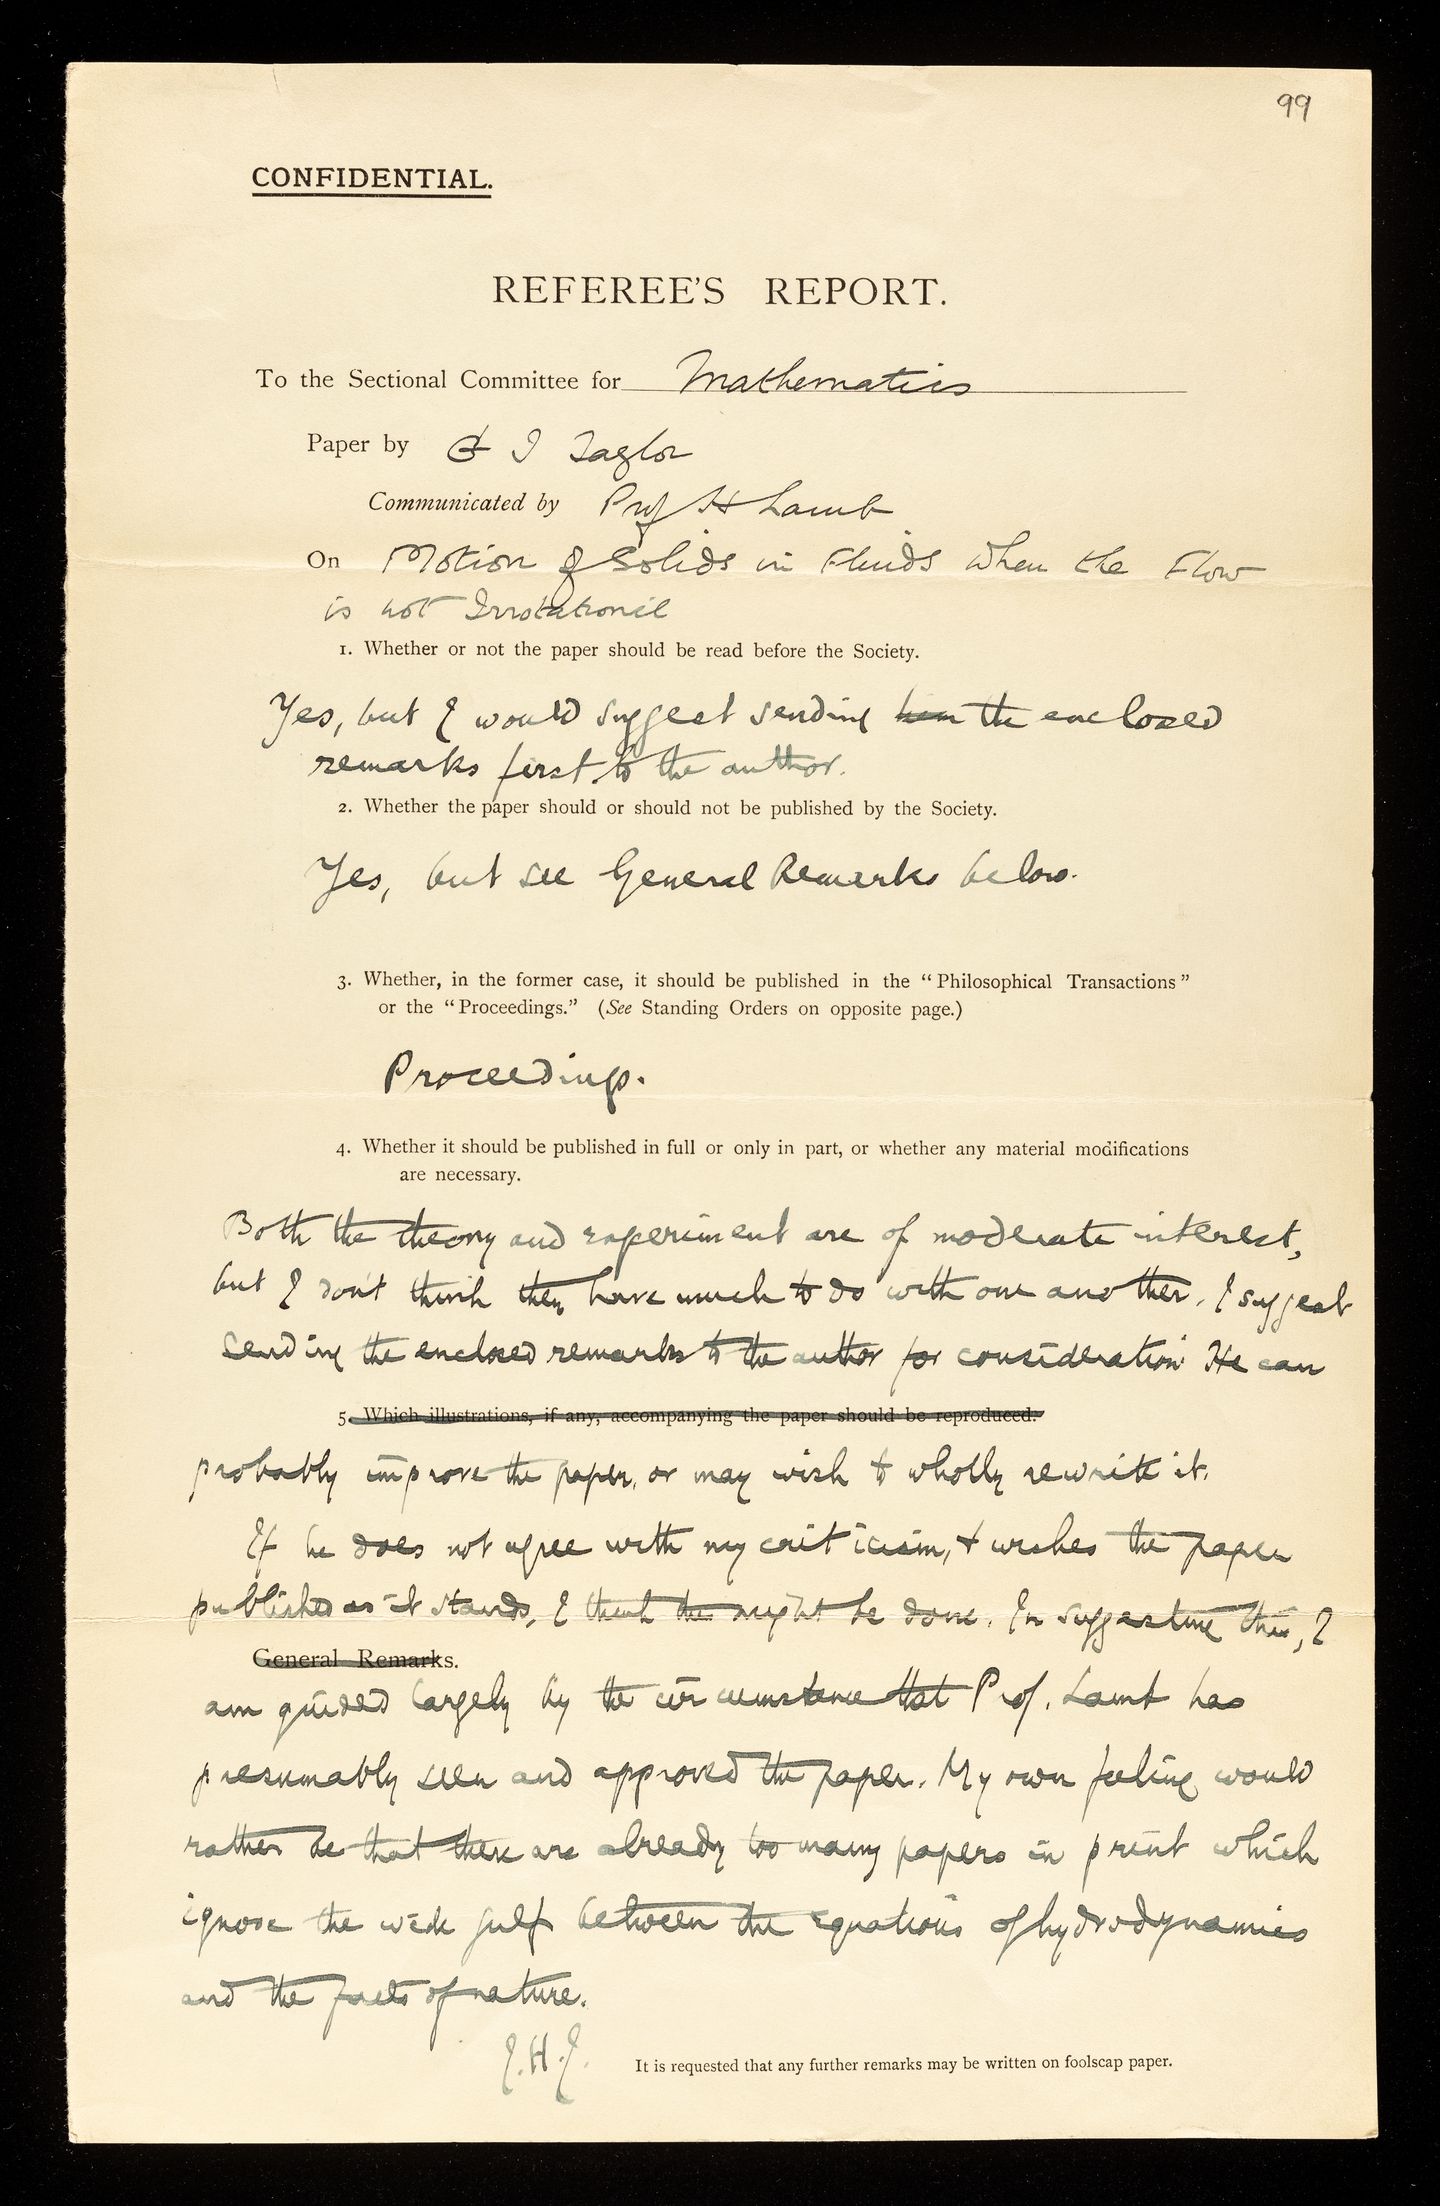 99
CONFIDENTIAL.
REFEREE'S REPORT.
To the Sectional Committee for Mathematics
Paper by G I Taylor
Communicated by Prof H Lamb
On Motion of Solids in Fluids when the Flow
is not Irrotational
1. Whether or not the paper should be read before the Society.
Yes, but I would suggest sending him the enclosed
remarks first to the author.
2. Whether the paper should or should not be published by the Society.
Yes, but see General Remarks below.
3. Whether, in the former case, it should be published in the "Philosophical Transactions"
or the "Proceedings." (See Standing Orders on opposite page.)
Proceedings.
4. Whether it should be published in full or only in part, or whether any material modifications
are necessary.
Both the theory and experiment are of moderate interest,
but I don't think they have much to do with one another. I suggest
sending the enclosed remarks to the author for consideration. He can
5. Which illustrations, if any, accompanying the paper should be reproduced.
probably improve the paper, or may wish to wholly rewrite it.
If he does not agree with my criticism, & wishes the paper
published as it stands, I think this might be done. In suggesting this, I
General Remarks.
am guided largely by the circumstance that Prof. Lamb has
presumably seen and approved the paper. My own feeling would
rather be that there are already too many papers in print which
ignore the wide gulf between the equations of hydrodynamics
and the facts of nature.
J.H.J.
It is requested that any further remarks may be written on foolscap paper.